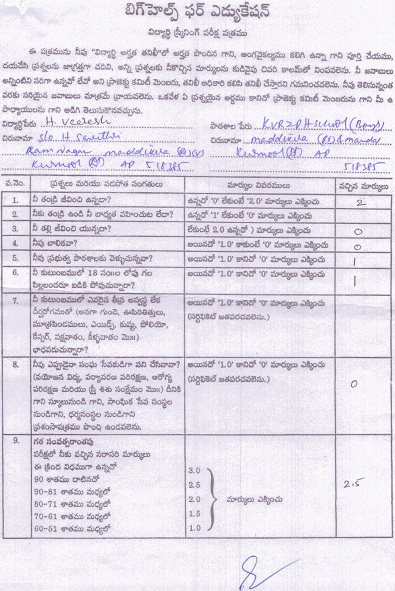 బిగ్‌హెల్ప్ ఫర్ ఎడ్యుకేషన్
విద్యార్థి స్క్రీనింగ్ పరీక్ష పత్రము
ఈ పత్రమును నీవు "విద్యార్థి అర్హత తనిఖీ"లో అర్హత పొందిన గాని, అంగవైకల్యము కలిగి ఉన్నా గాని పూర్తి చేయుము,
దయచేసి ప్రశ్నలకు జాగ్రత్తగా చదివి, అన్ని ప్రశ్నలకు నీకొచ్చిన మార్కులను కుడివైపు చివరి కాలమ్‌లో నింపవలెను. నీ జవాబులు
అన్నింటిని సరిగా ఉన్నవో లేవో అని ప్రాజెక్టు కమిటీ మెంబరు, తనిఖీ అధికారి కలిసి తనిఖీ చేస్తారని గమనించవలెను. నీవు తెలిసినంత
వరకు సరియైన జవాబులు మాత్రమే వ్రాయవలెను. ఒకవేళ ఏ ప్రశ్నయైన అర్థము కానిచో ప్రాజెక్టు కమిటీ మెంబరును గాని మీ ఉ
పాధ్యాయులను గాని అడిగి తెలుసుకొనవచ్చును.
విద్యార్థిపేరు H. Veeresh పాఠశాల పేరు KVR Z P H School (Boys)
చిరునామా S/o. H Savithri చిరునామా maddikera (P) & mandal
Ram nagar maddikera (P) (V) Kurnool (Dt) AP
Kurnool (Dt) AP 518385 518385
వ.నెం. ప్రశ్నలు మరియు సదహాత సంగతులు మార్కుల వివరములు వచ్చిన మార్కులు
1. నీ తండ్రి జీవించి ఉన్నడా? ఉన్నచో '0' లేకుంటే '2.0' మార్కులు ఎక్కించు 2
2. నీకు తండ్రి ఉండి నీ బాధ్యత వహించుట లేదా? ఉన్నచో '1' లేకుంటే '0' మార్కులు ఎక్కించు
3. నీ తల్లి జీవించి యున్నదా? లేకుంటే 2.0 ఉన్నచో ) మార్కులు ఎక్కించు 0
4. నీవు బాలికవా? అయినచో '1.0' కాకుంటే '0' మార్కులు ఎక్కించు 0
5. నీవు ప్రభుత్వ పాఠశాలకు వెళ్ళుచున్నావా? అయినచో '1.0' కానిచో '0' మార్కులు ఎక్కించు 1
6. నీ కుటుంబములో 18 సం॥ల లోపు గల
పిల్లలందరూ బడికి పోవుచున్నారా? అయినచో '1.0' కానిచో '0' మార్కులు ఎక్కించు 1
7. నీ కుటుంబములో ఎవరైన తీవ్ర అస్వస్థ లేక
దీర్ఘరోగముతో (అనగా గుండె, ఊపిరితిత్తులు,
మూత్రపిండములు, ఎయిడ్స్, కుష్ఠు, పోలియో,
కేన్సర్, పక్షవాతం, కీళ్ళవాతం మొ॥)
బాధపడుచున్నారా? అయినచో '1.0' కానిచో '0' మార్కులు ఎక్కించు
(సర్టిఫికెట్ జతపరచవలెను.)
8. నీవు ఎప్పుడైనా సంఘ సేవకుడిగా పని చేసినావా?
(వయోజన విద్య, పర్యావరణ పరిరక్షణ, ఆరోగ్య
పరిరక్షణ మరియు స్త్రీ శిశు సంక్షేమం మొ॥) దీనికి
గాని స్కూలునుండి గాని, సాంఘిక సేవ సంస్థల
నుండిగాని, ధర్మసంస్థల నుండిగాని
ప్రశంసాపత్రము పొంది ఉండవలెను. అయినచో '1.0' కానిచో '0' మార్కులు ఎక్కించు
(సర్టిఫికెట్ జతపరచవలెను.) 0
9. గత సంవత్సరాంతపు
పరీక్షలో నీకు వచ్చిన సరాసరి మార్కులు
ఈ క్రింద విధముగా ఉన్నచో
90 శాతము దాటినచో 3.0
90-81 శాతము మధ్యలో 2.5
80-71 శాతము మధ్యలో 2.0 మార్కులు ఎక్కించు 2.5
70-61 శాతము మధ్యలో 1.5
60-51 శాతము మధ్యలో 1.0